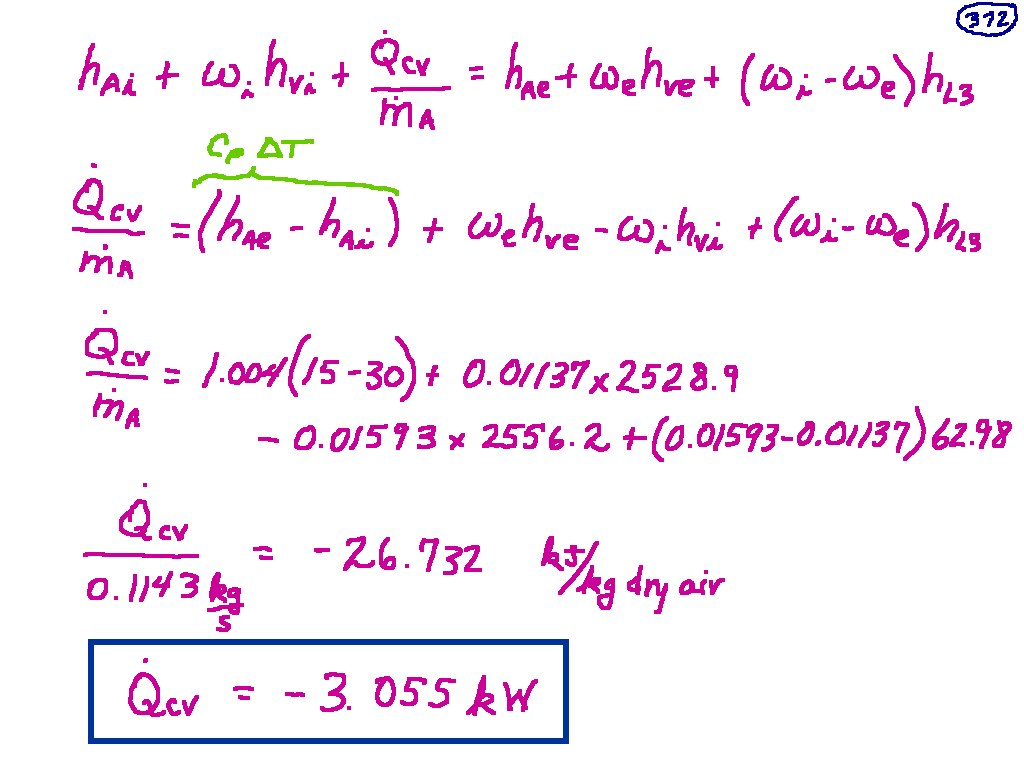 372
h_Ai + ω_i h_vi + Q̇_cv/ṁ_A = h_Ae + ω_e h_ve + (ω_i - ω_e) h_L3
C_p ΔT
Q̇_cv/ṁ_A = (h_Ae - h_Ai) + ω_e h_ve - ω_i h_vi + (ω_i - ω_e) h_L3
Q̇_cv/ṁ_A = 1.004(15-30) + 0.01137 x 2528.9
- 0.01593 x 2556.2 + (0.01593-0.01137) 62.98
Q̇_cv/0.1143 kg/s = -26.732 kJ/kg dry air
Q̇_cv = -3.055 kW